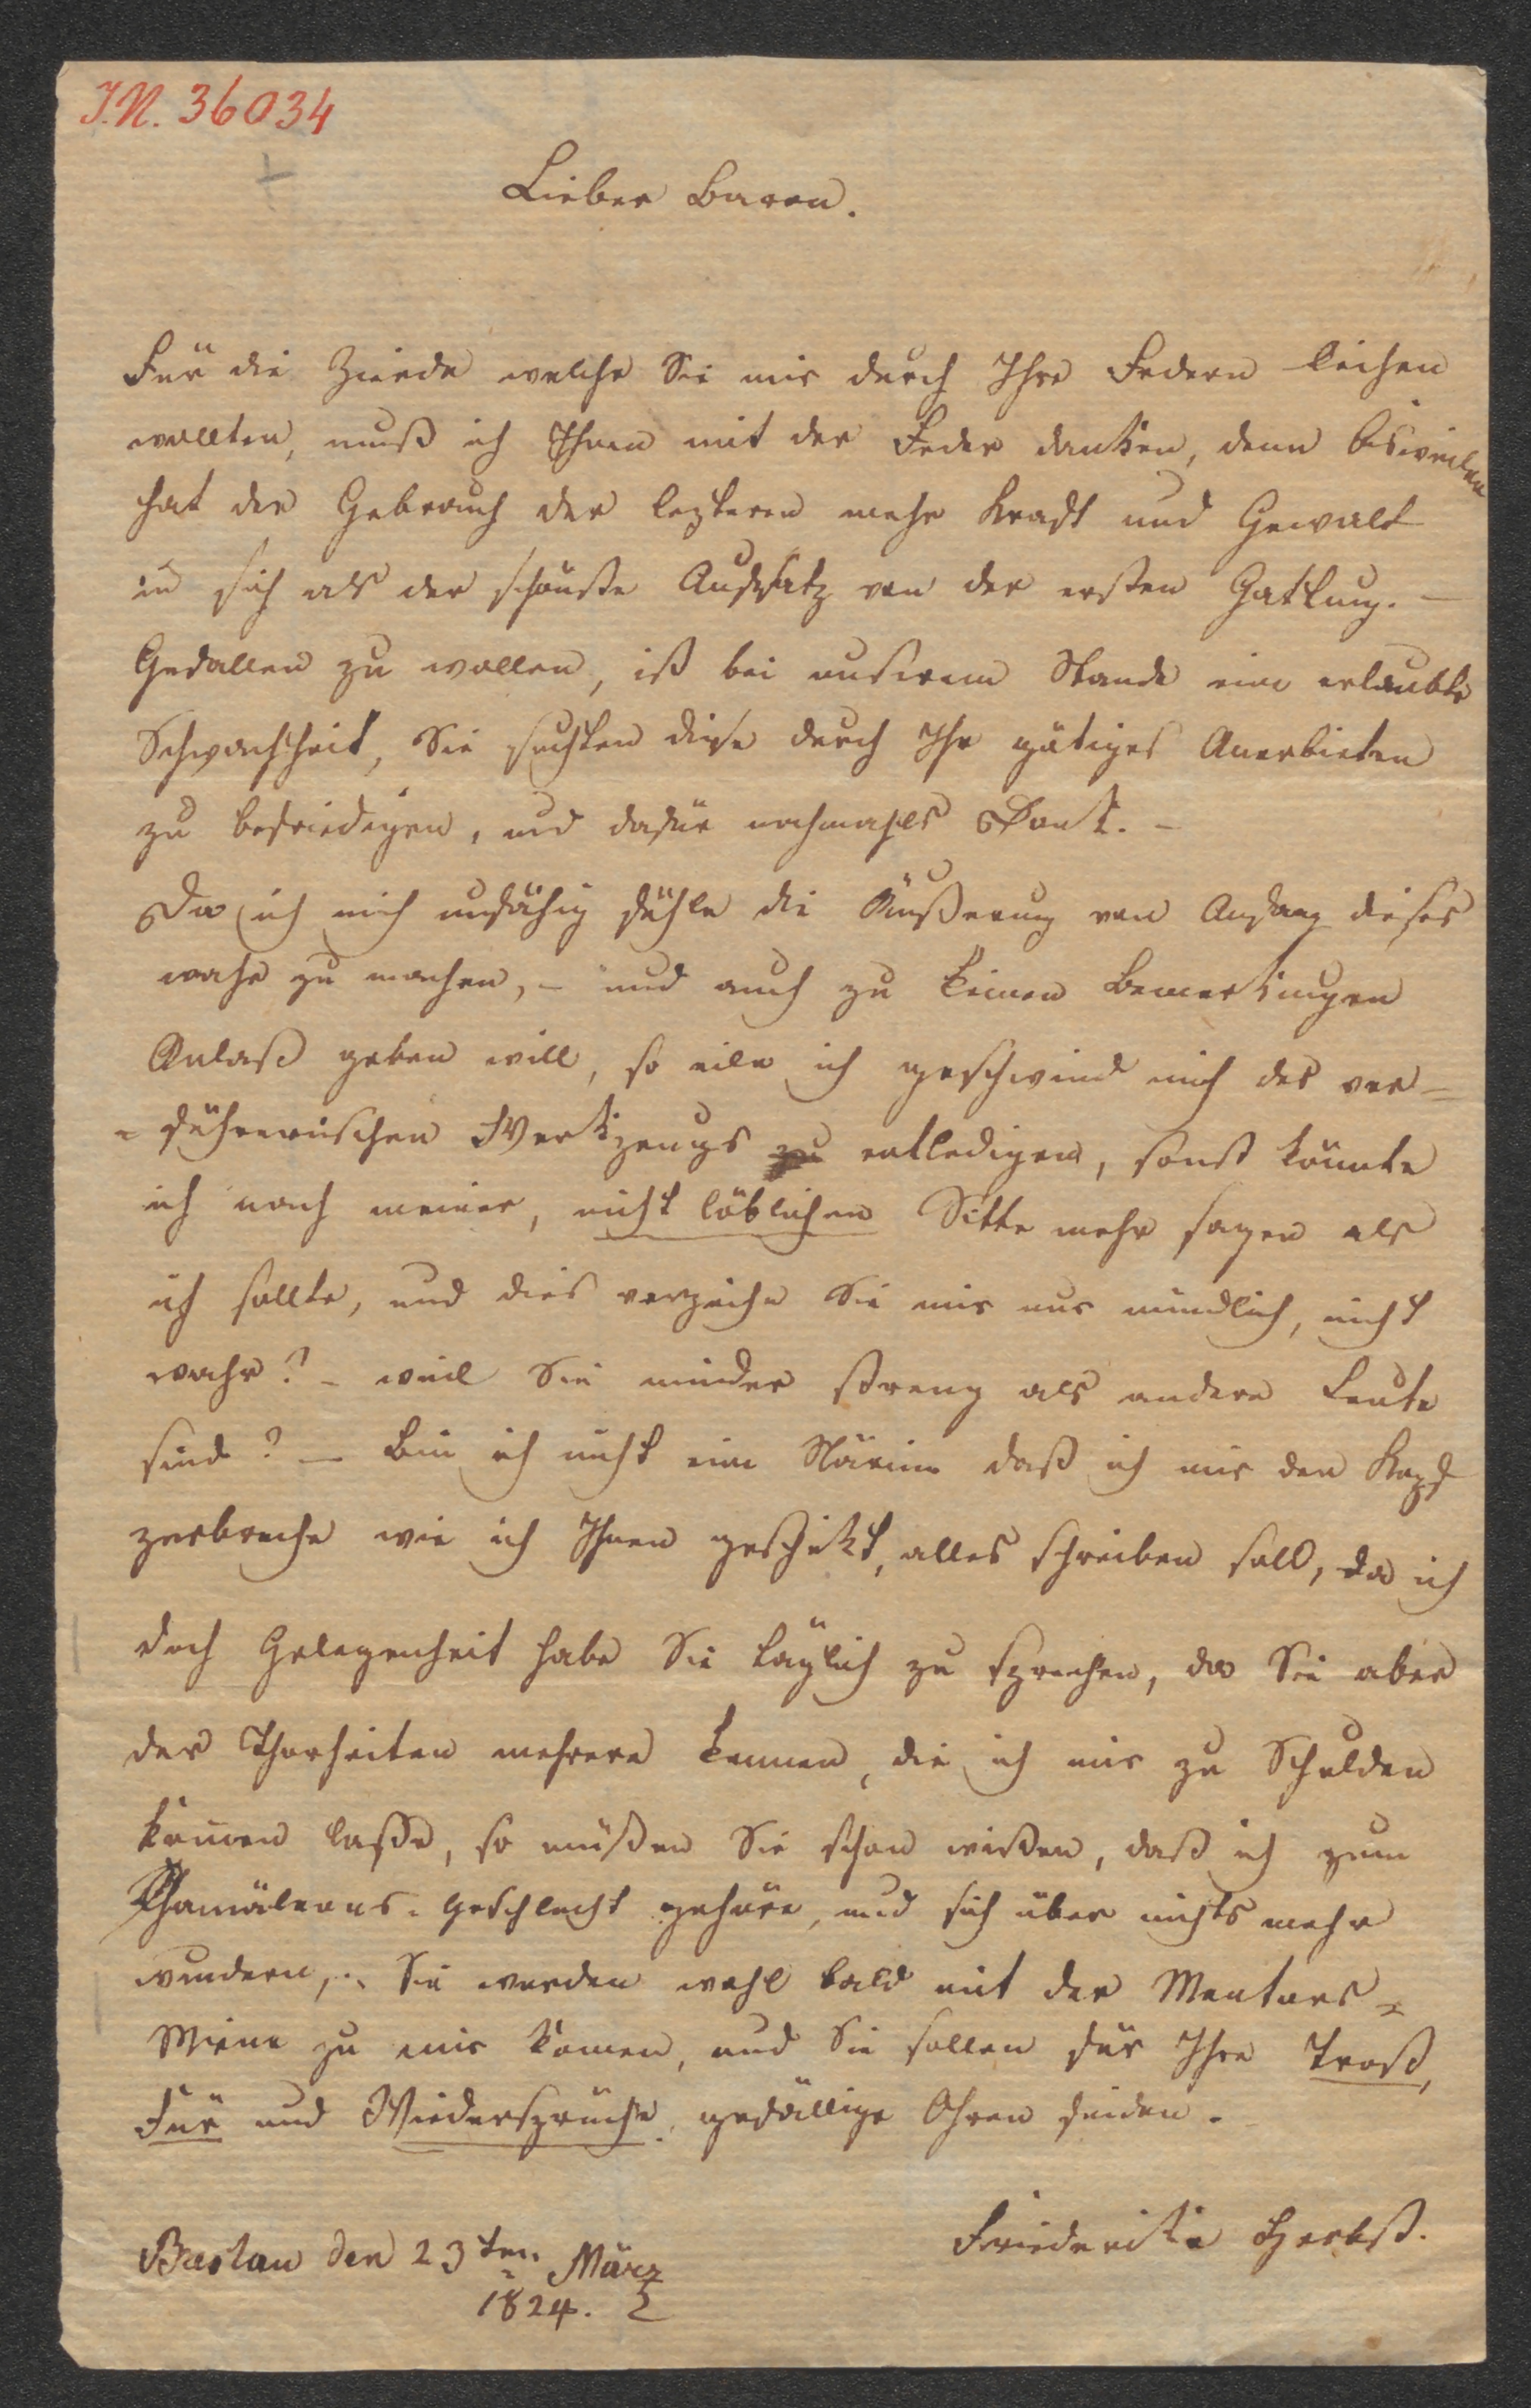 J.N. 36034
Lieber Baron.
Für die Zierde welche Sie mir durch Ihre Federn leihen
wollten, muß ich Ihnen mit der Feder danken, denn bisweilen
hat der Gebrauch der lezteren mehr Kraft und Gewalt
in sich als der schönste Aufsatz von der ersten Gattung. –
Gefallen zu wollen, ist bei unserem Stande eine erlaubte
Schwachheit, Sie suchten diese durch Ihr gütiges Anerbieten
zu befriedigen, und dafür nochmahls Dank. –
Da ich mich unfähig fühle die Äußerung von Anfang dieses
wahr zu machen, – und auch zu keinen Bemerkungen
Anlaß geben will, so eile ich geschwind mich des ver=
=führerischen Werkzeugs zu entledigen, sonst könnte
ich nach meiner, nicht löblichen Sitte mehr sagen als
ich sollte, und dies verzeihn Sie mir nur mündlich, nicht
wahr? – weil Sie minder streng als andere Leute
sind? – Bin ich nicht eine Närrin daß ich mir den Kopf
zerbreche wie ich Ihnen geschikt, alles schreiben soll, da ich
doch Gelegenheit habe Sie täglich zu sprechen, da Sie aber
der Thorheiten mehrere kennen, die ich mir zu Schulden
kom̅en laße, so müßen Sie schon wißen, daß ich zum
Chamäleons=geschlecht gehöre, und sich über nichts mehr
wundern, – Sie werden wohl bald mit der Mentors=
Miene zu mir kom̅en, und Sie sollen für Ihre Trost,
Für und Wiedersprüche gefällige Ohren finden.
Friederike Herbst.
Breslau den 23ten März
1824.